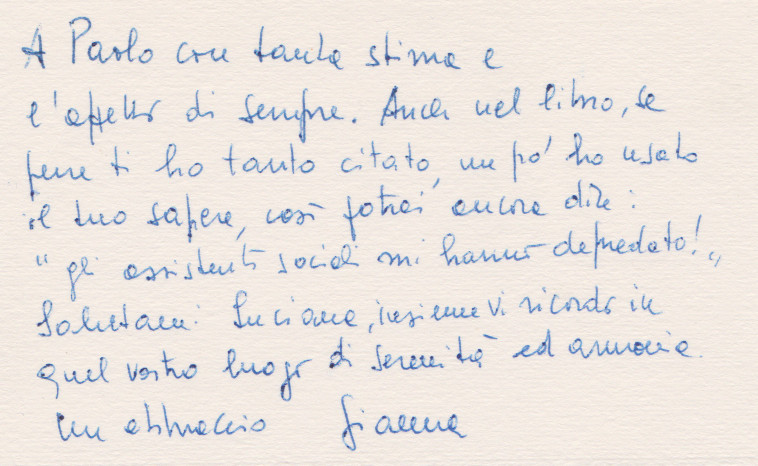 A Paolo con tanta stima e
l'affetto di sempre. Anch nel libro, se
pure ti ho tanto citato, un po' ho usato
il tuo sapere, così potrai ancora dire:
" gli assistenti sociali mi hanno depredato! "
Salutami Luciana, insieme vi ricordo in
quel vostro luogo di serenità ed armonia.
Un abbraccio Gianna